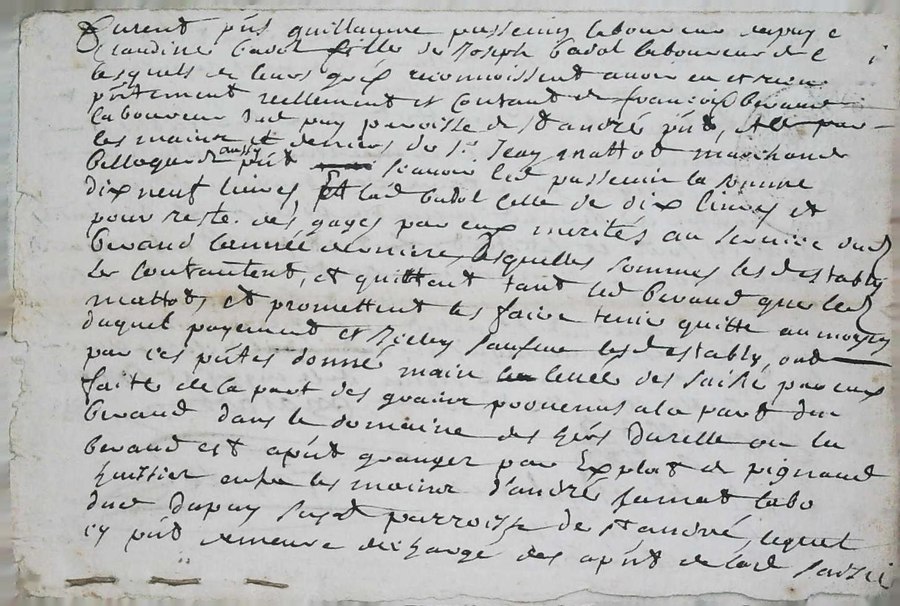 Furent pnts guillaume passemy laboureur
Claudine badol fille de Joseph badol laboureur de
lesquels de leurs gré reconnoissent avoir eu et receu
pntement reellement et contant de françois beraud
laboureur dud puy parroisse de st andré pnt, et par
les mains et deniers de sr Jean mattot marchand
bellegarde aussy pnt scavoir led passemy la somme
dix neuf livres, et lad badol celle de dix livres et
pour reste des gages par eux merités au service dud
beraud l'année derniere, lesquelles sommes les establys
se contantent, et quittent tant led beraud que led
mattot, et promettent les faire tenir quitte au moyen
duquel payement et les establys, ont
par ces pntes donné main levée des saisie par eux
faite de la part des grains provenus a la part dud
beraud dans le domaine des hers Durelle ou led
beraud est apnt granger par Exploit de pignaud
huissier entre les mains d'andré jamet labo
dud Dupuy susd parroisse de st andré, lequel
cy pnt demeure déchargé des apnt de lad saisie